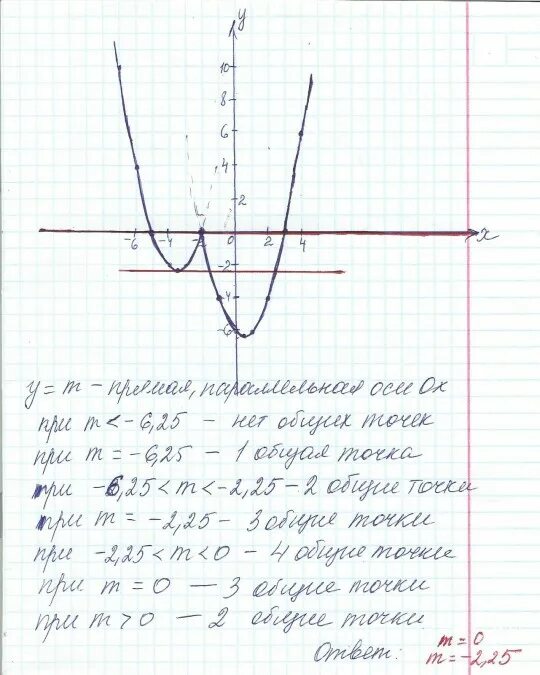 y
10
8
6
4
2
-6 -4 -2 0 2 4 x
-2
-4
-6
y = m – прямая, параллельная оси Ox
при m < -6,25 – нет общих точек
при m = -6,25 – 1 общая точка
при -6,25 < m < -2,25 – 2 общие точки
при m = -2,25 – 3 общие точки
при -2,25 < m < 0 – 4 общие точки
при m = 0 — 3 общие точки
при m > 0 — 2 общие точки
Ответ: m = 0
m = -2,25